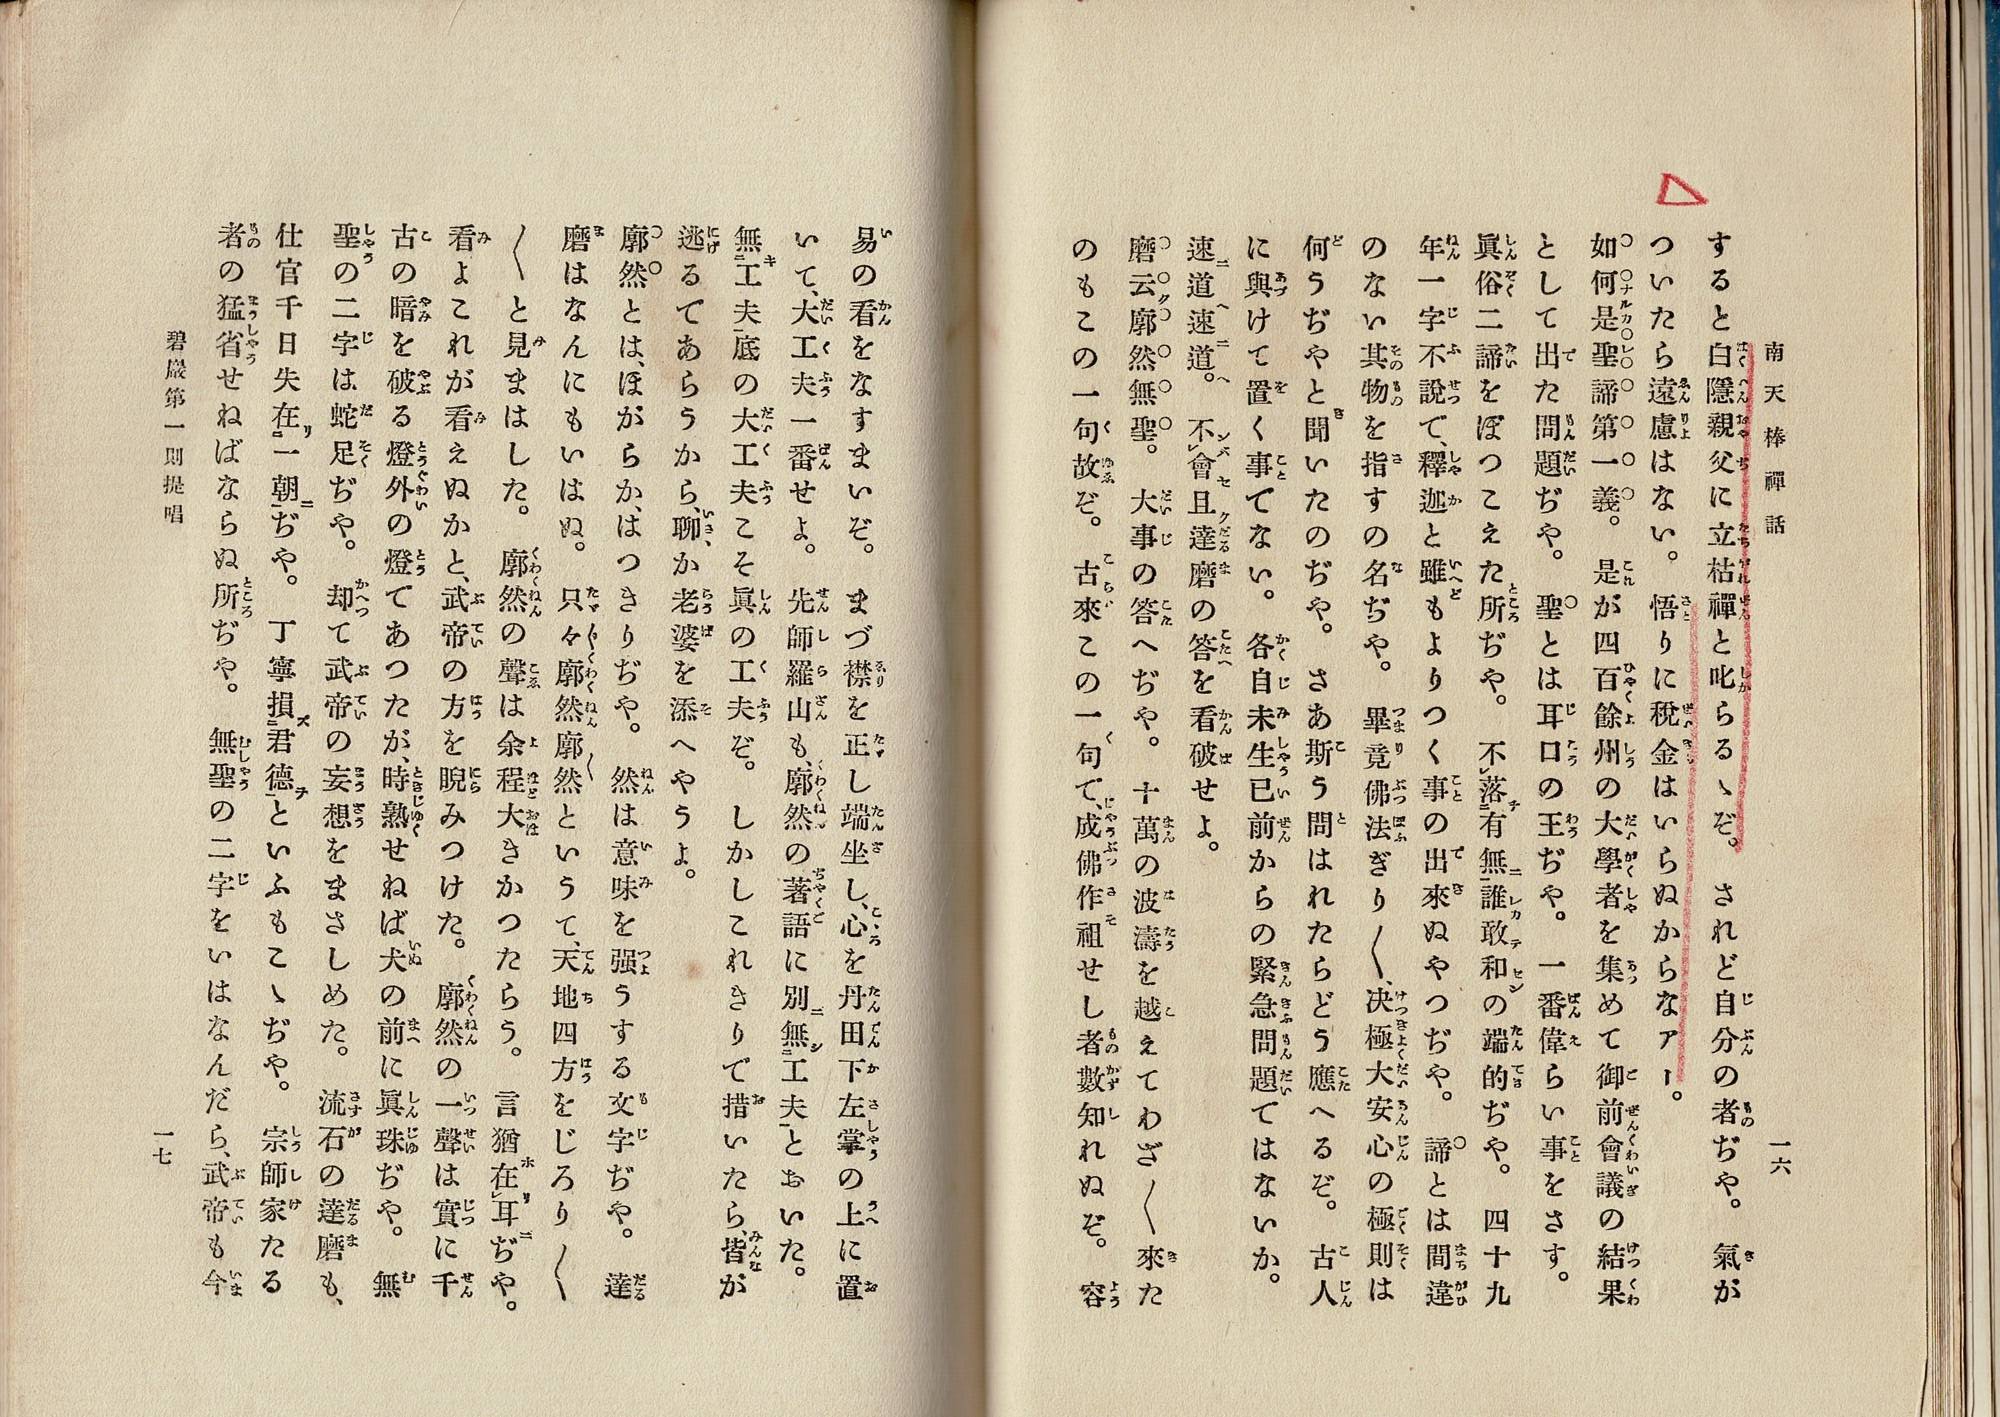 南天棒禪話
一六
すると白隱親父に立枯禪と叱らるゝぞ。されど自分の者ぢや。氣が
ついたら遠慮はない。悟りに稅金はいらぬからなァー。
如何是聖諦第一義。是が四百餘州の大學者を集めて御前會議の結果
として出た問題ぢや。聖とは耳口の王ぢや。一番偉らい事をさす。
眞俗二諦をぼつこえた所ぢや。不落有無誰敢和の端的ぢや。四十九
年一字不說で、釋迦と雖もよりつく事の出來ぬやつぢや。諦とは間違
のない其物を指すの名ぢや。畢竟佛法ぎり〱、决極大安心の極則は
何うぢやと聞いたのぢや。さあ斯う問はれたらどう應へるぞ。古人
に與けて置く事でない。各自未生已前からの緊急問題ではないか。
速道速道。不會且達磨の答を看破せよ。
磨云廓然無聖。大事の答へぢや。十萬の波濤を越えてわざ〱來た
のもこの一句故ぞ。古來この一句で、成佛作祖せし者數知れぬぞ。容
易の看をなすまいぞ。まづ襟を正し端坐し、心を丹田下左掌の上に置
いて、大工夫一番せよ。先師羅山も、廓然の著語に別無工夫とおいた。
無工夫底の大工夫こそ眞の工夫ぞ。しかしこれきりで措いたら、皆が
逃るであらうから、聊か老婆を添へやうよ。
廓然とは、ほがらか、はつきりぢや。然は意味を强うする文字ぢや。達
磨はなんにもいはぬ。只々廓然廓然というて、天地四方をじろり〱
〱と見まはした。廓然の聲は余程大きかつたらう。言猶在耳ぢや。
看よこれが看えぬかと、武帝の方を睨みつけた。廓然の一聲は實に千
古の暗を破る燈外の燈であつたが、時熟せねば犬の前に眞珠ぢや。無
聖の二字は蛇足ぢや。却て武帝の妄想をまさしめた。流石の達磨も、
仕官千日失在一朝ぢや。丁寧損君德といふもこゝぢや。宗師家たる
者の猛省せねばならぬ所ぢや。無聖の二字をいはなんだら、武帝も今
碧巖第一則提唱
一七